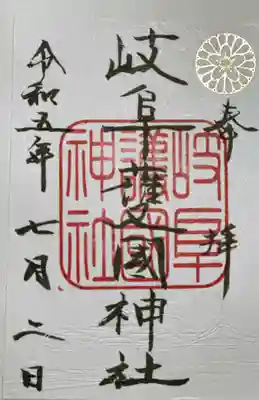 奉拝
岐阜護國神社
岐阜護國神社
令和五年七月二日